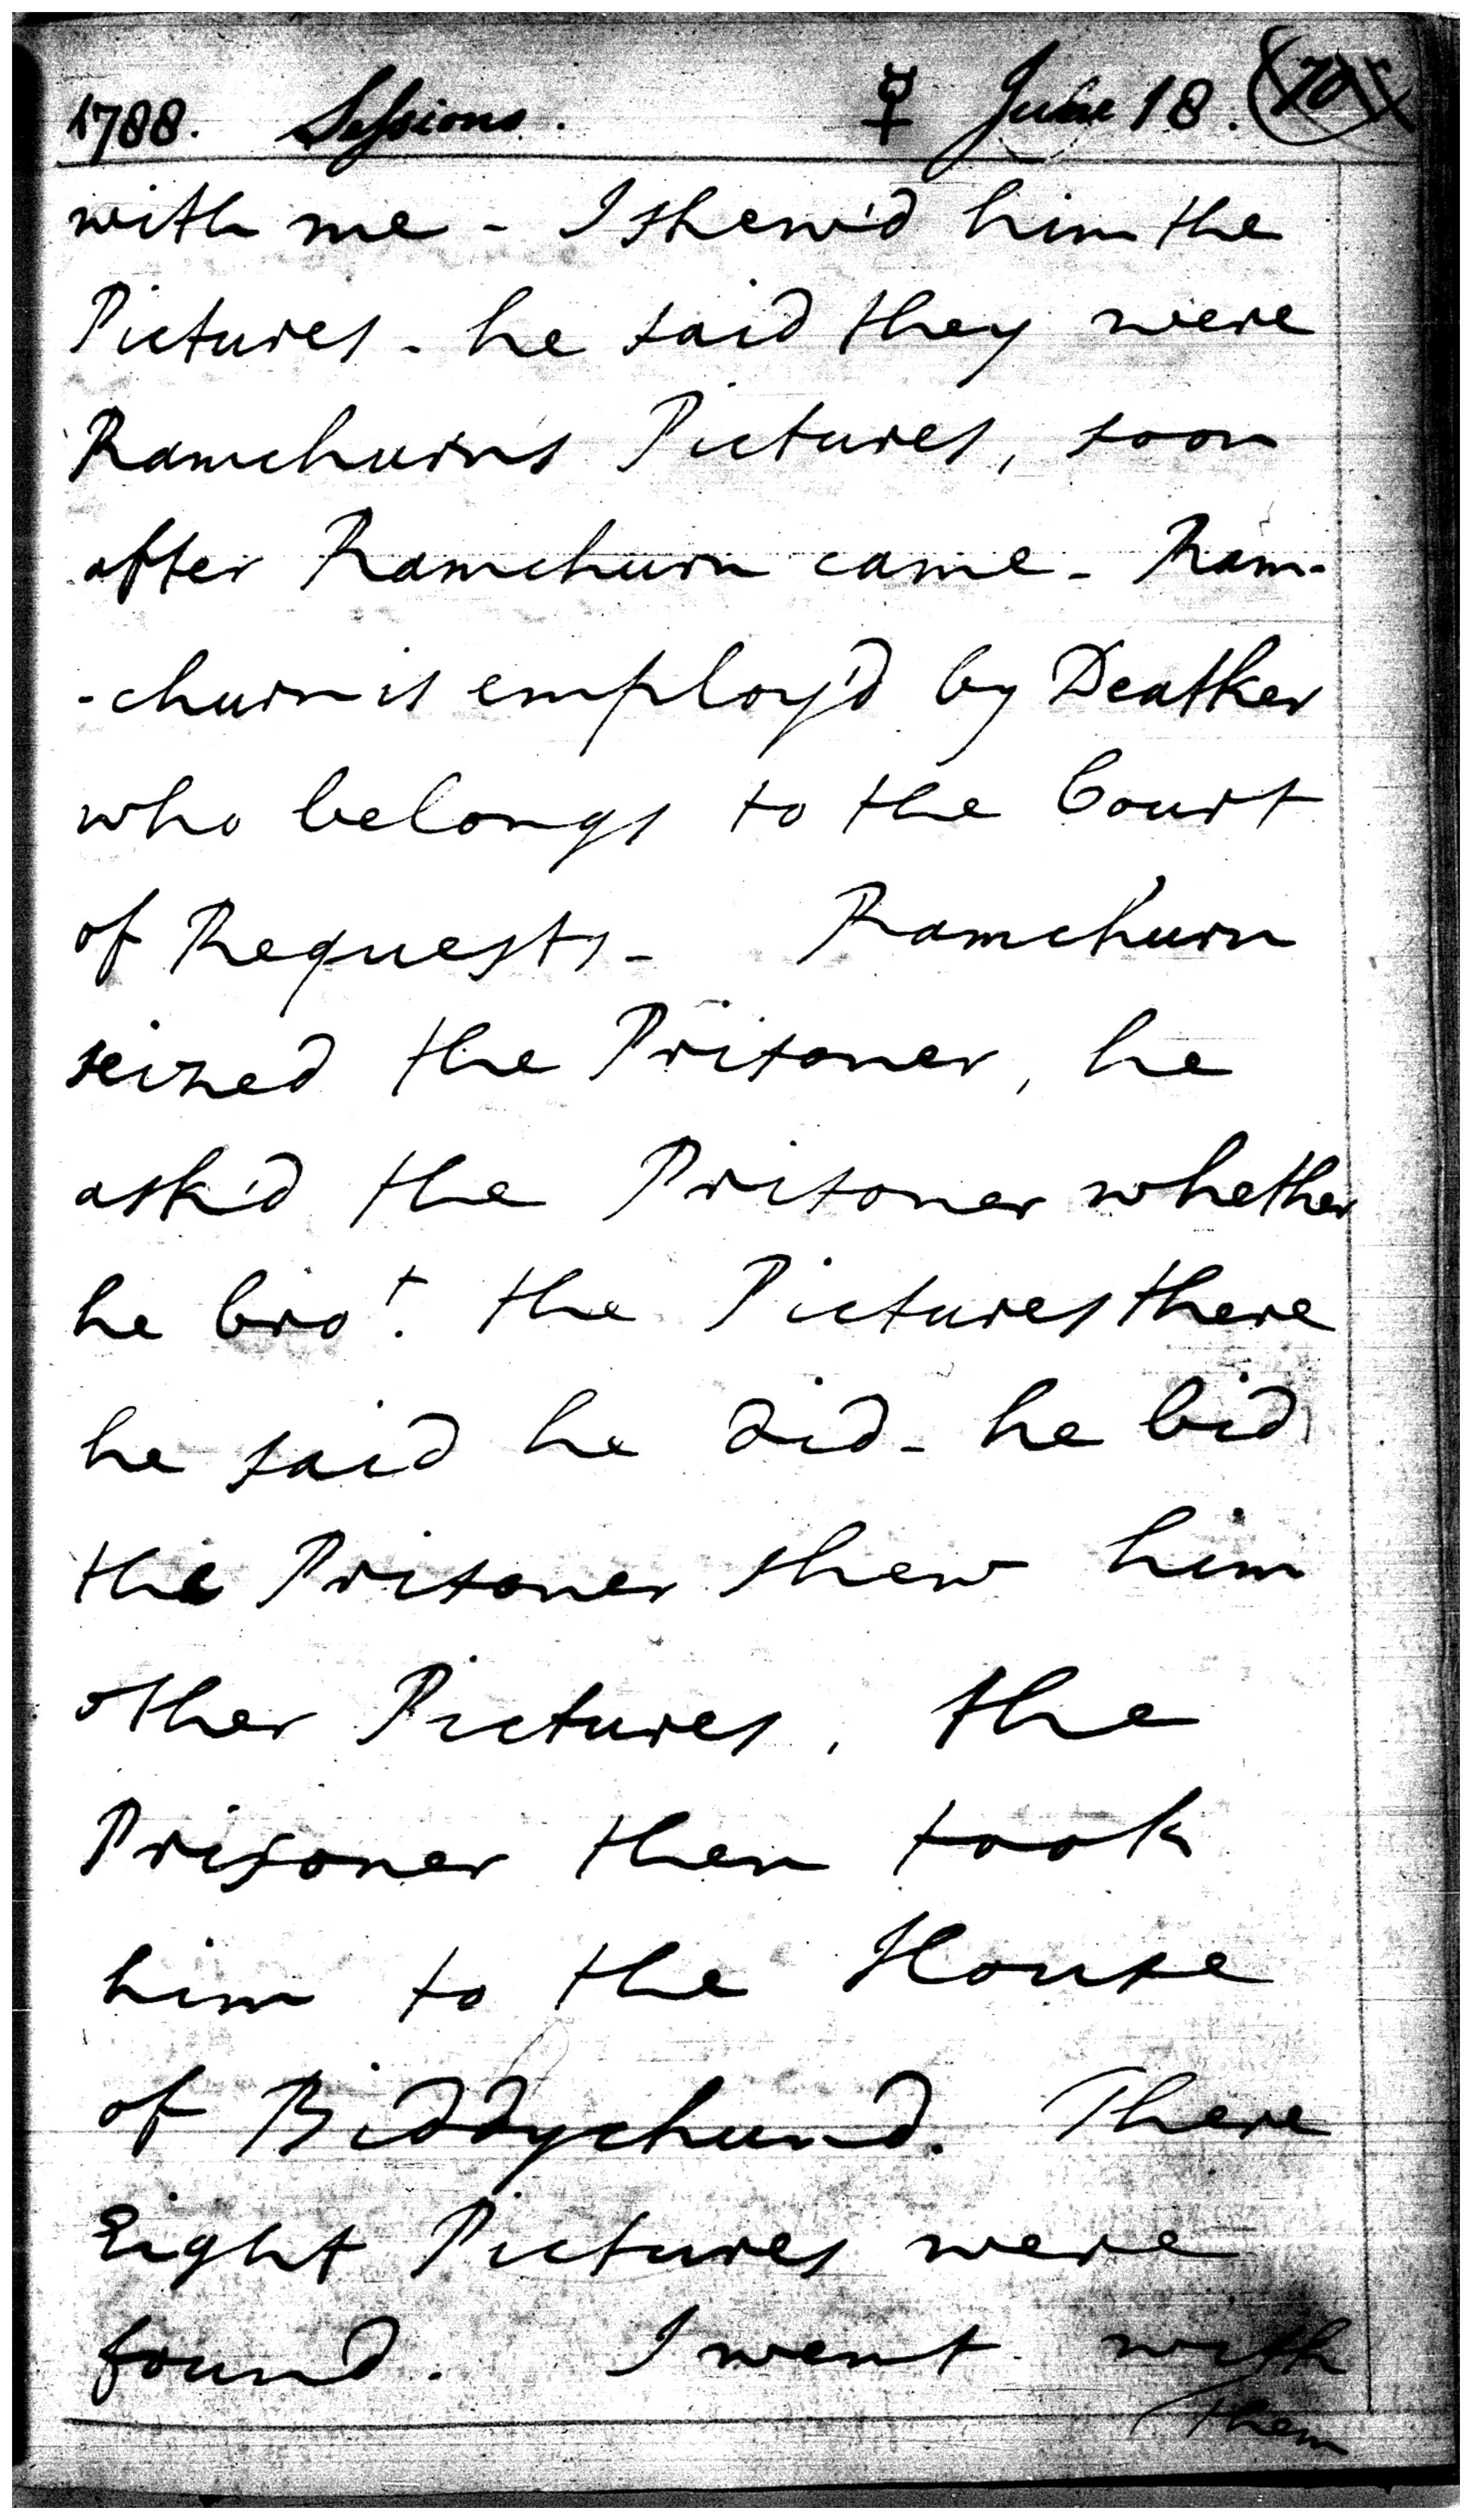 1788. Sessions. ☿ June 18.
with me - I shew'd him the
Pictures - he said they were
Ramchurns Pictures, soon
after Ramchurn came - Ram-
-churn is employ'd by Deatker
who belongs to the Court
of Requests - Ramchurn
seized the Prisoner, he
ask'd the Prisoner whether
he bro.t the Pictures there
he said he did - he bid
the Prisoner shew him
other Pictures, the
Prisoner then took
him to the House
of Biddychund. There
Eight Pictures were
found. I went with
them